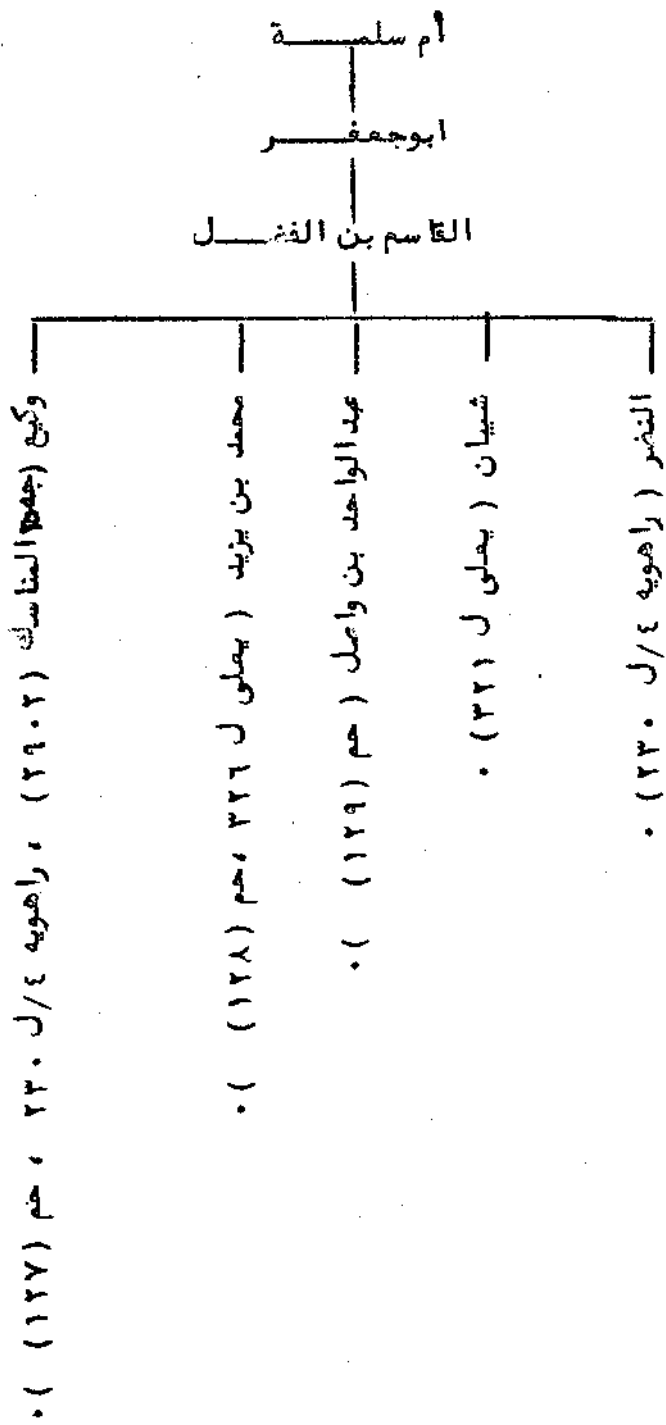 أم سلمـــــة
ابوجعفـــــر
القاسم بن الفضـــل
النضر ( راهويه ٤/ل ٢٣٠) .
شيبان ( يعلى ل ٣٢١) .
عبدالواحد بن واصل ( حم (١٢٩) ) .
محمد بن يزيد ( يعلى ل ٣٢٦ ، حم (١٢٨) ) .
وكيع (جه المناسك (٢٩٠٢) ، راهويه ٤/ل ٢٣٠ ، حم (١٢٧) ) .